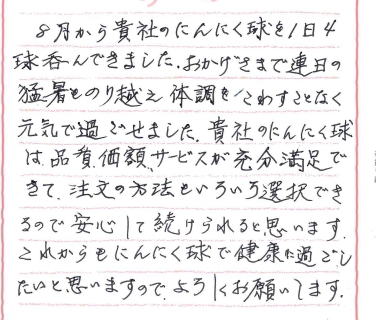 8月から貴社のにんにく球を1日4
球呑んできました.おかげさまで連日の
猛暑ものり越え 体調をこわすことなく
元気で過ごせました.貴社のにんにく球
は、品質、価額、サービスが充分満足で
きて、注文の方法もいろいろ選択でき
るので安心して続けられると思います.
これからもにんにく球で健康に過ごし
たいと思いますので、よろしくお願いします.